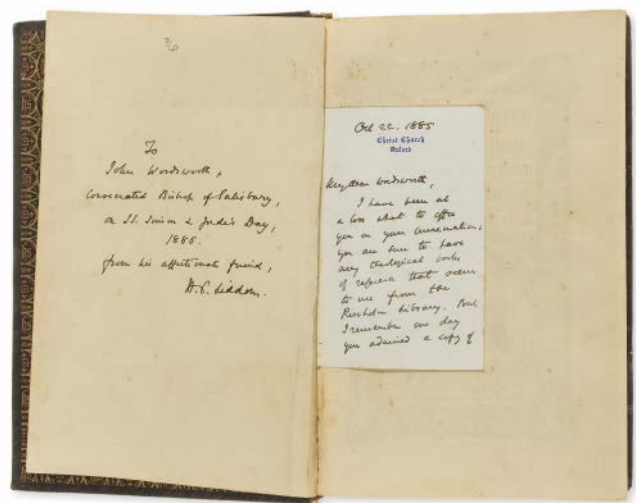 To
John Wordsworth,
Consecrated Bishop of Salisbury,
on SS. Simon & Jude's Day,
1885.
from his affectionate friend,
H. P. Liddon.
Oct 22. 1885
Christ Church
Oxford
My dear Wordsworth,
I have been at
a loss what to offer
you on your Consecration;
you are sure to have
any theological works
of reference that occur
to me from the
Library. But
I remember one day
you admired a copy of